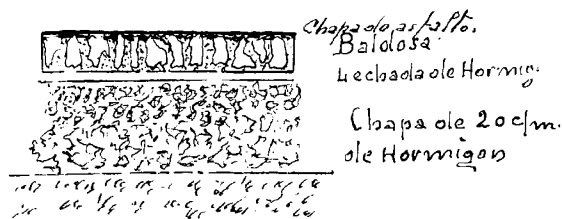 Chapa de asfalto.
Baldosa
Lechada de Hormig.
Chapa de 20 c/m.
de Hormigon